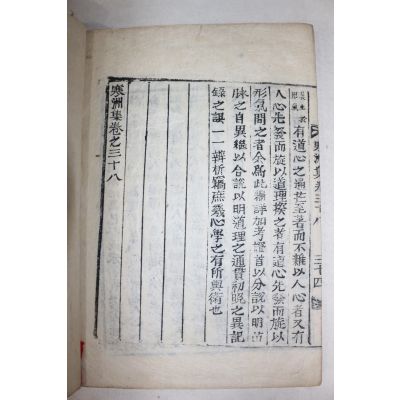 寒洲集卷三十八 三十四
有道心之至著而不雜以人心者又有
人心先發而旋以道理揆之者有道心先發而旋以
形氣間之者今爲此編詳加考證首以分說以明苗
脉之自異繼以合說以明道理之通貫初晚之異記
錄之誤一一辨析竊庶幾心學之有所與術也
寒洲集卷之三十八